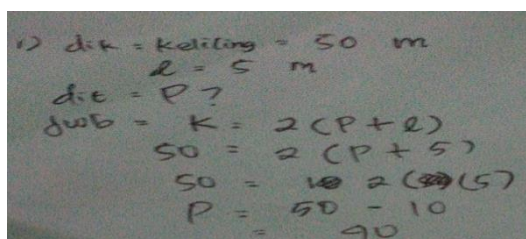 1) dik = keliling = 50 m
l = 5 m
dit = P ?
Jwb = K = 2 (P + l)
50 = 2 (P + 5)
50 = 2 (5)
P = 50 - 10
= 90